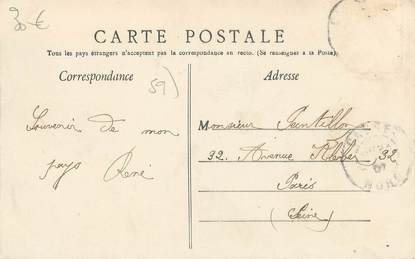 30 €
CARTE POSTALE
Tous les pays étrangers n'acceptent pas la correspondance au recto. (Se renseigner à la Poste).
Correspondance
59)
Adresse
Souvenir de mon
pays René
Monsieur
32. Avenue Kléber, 32
Paris
(Seine)
NORD